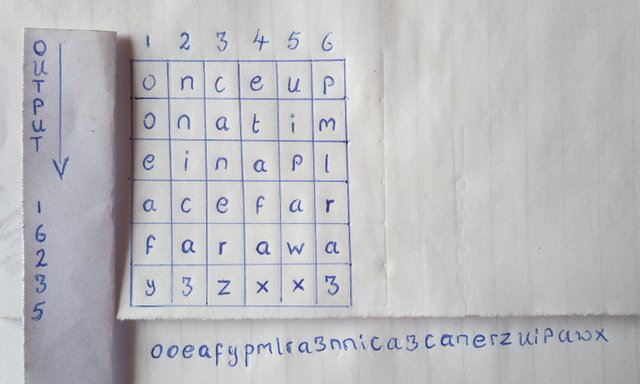 OUTPUT
1
6
2
3
5
1 2 3 4 5 6
o n c e u p
o n a t i m
e i n a p l
a c e f a r
f a r a w a
y 3 z x x 3
ooeafypmlra3nnica3canerzuipawx